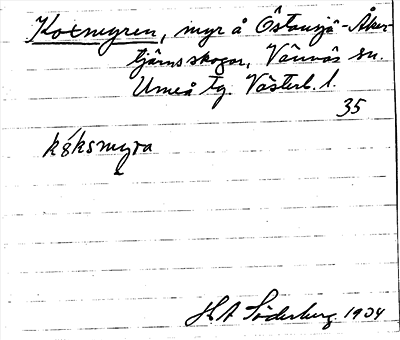 Koxmyren, myr å Östansjö-Åker-
tjärns skogar, Vännäs sn.
Umeå tg. Västerb. l.
35
kåksmyra
H A Söderberg 1934